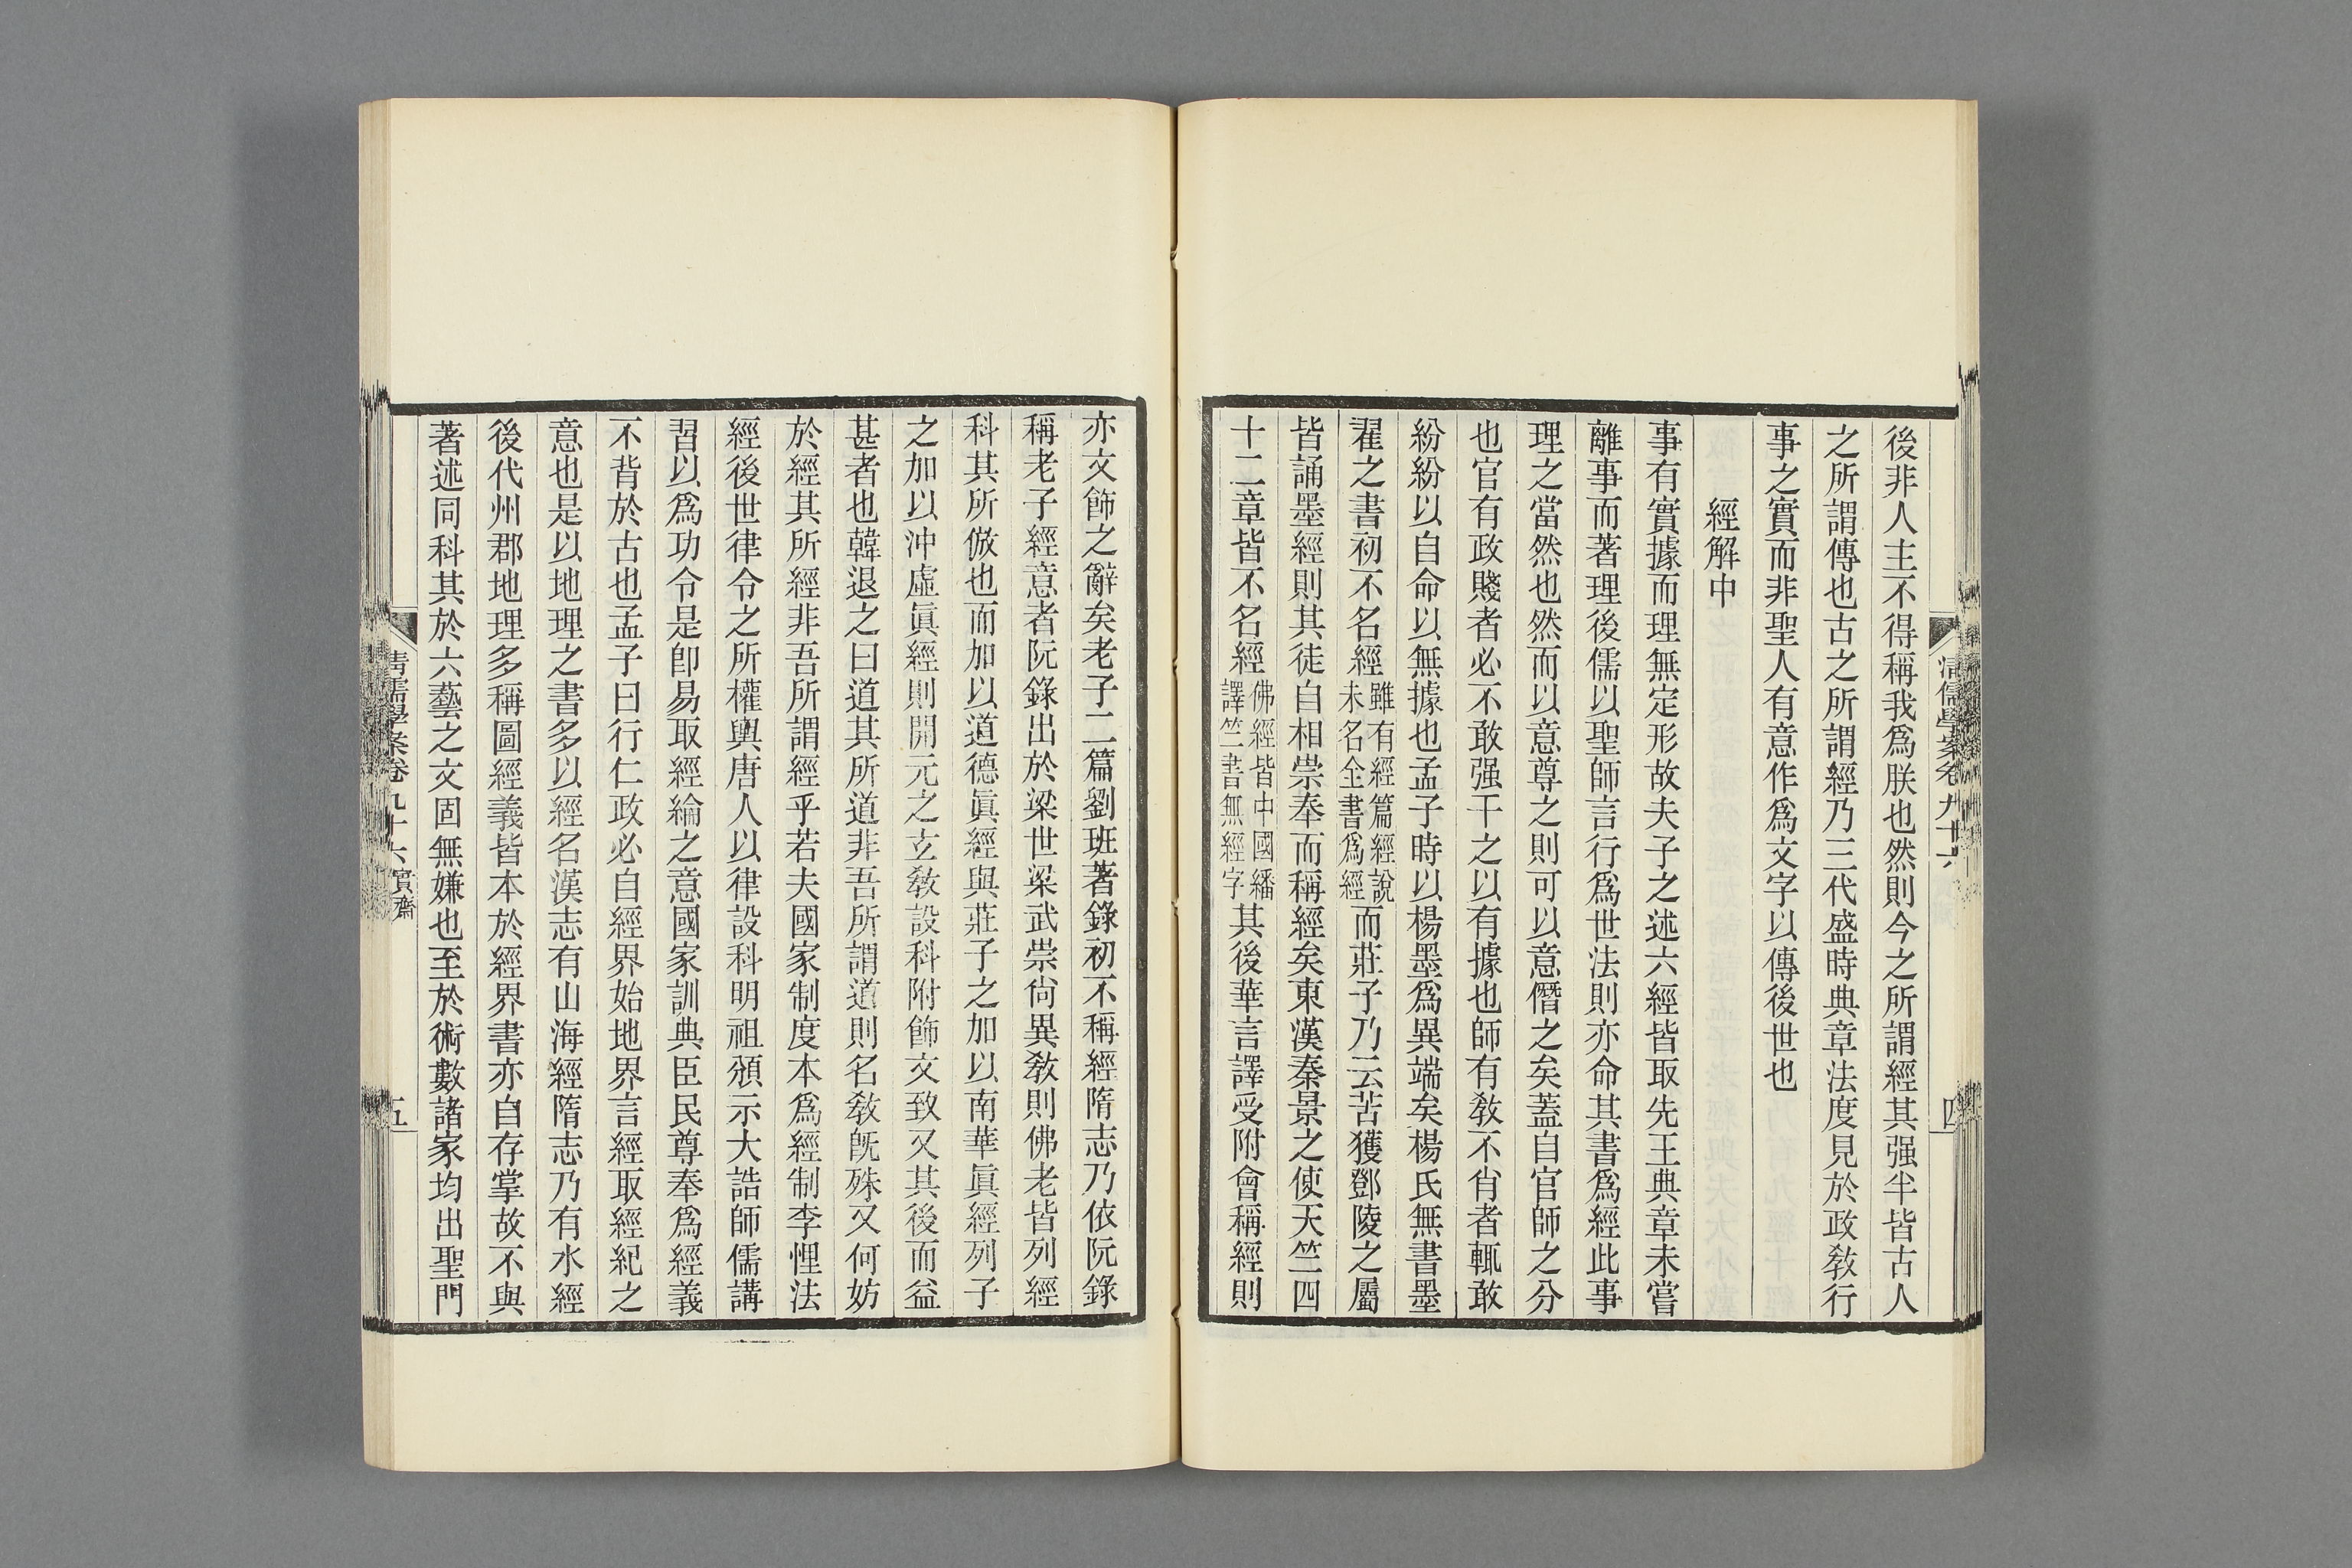 清儒學案卷九十六
四
後非人主不得稱我爲朕也然則今之所謂經其强半皆古人
之所謂傳也古之所謂經乃三代盛時典章法度見於政敎行
事之實而非聖人有意作爲文字以傳後世也
經解中
事有實據而理無定形故夫子之述六經皆取先王典章未嘗
離事而著理後儒以聖師言行爲世法則亦命其書爲經此事
理之當然也然而以意尊之則可以意僭之矣蓋自官師之分
也官有政賤者必不敢强干之以有據也師有敎不肖者輒敢
紛紛以自命以無據也孟子時以楊墨爲異端矣楊氏無書墨
翟之書初不名經雖有經篇經說未名全書爲經而莊子乃云苦獲鄧陵之屬
皆誦墨經則其徒自相崇奉而稱經矣東漢秦景之使天竺四
十二章皆不名經佛經皆中國繙譯竺書無經字其後華言譯受附會稱經則
亦文飾之辭矣老子二篇劉班著錄初不稱經隋志乃依阮錄
稱老子經意者阮錄出於梁世梁武崇尙異敎則佛老皆列經
科其所倣也而加以道德眞經與莊子之加以南華眞經列子
之加以沖虛眞經則開元之玄敎設科附飾文致又其後而益
甚者也韓退之曰道其所道非吾所謂道則名敎旣殊又何妨
於經其所經非吾所謂經乎若夫國家制度本爲經制李悝法
經後世律令之所權輿唐人以律設科明祖頒示大誥師儒講
習以爲功令是卽易取經綸之意國家訓典臣民尊奉爲經義
不背於古也孟子曰行仁政必自經界始地界言經取經紀之
意也是以地理之書多以經名漢志有山海經隋志乃有水經
後代州郡地理多稱圖經義皆本於經界書亦自存掌故不與
著述同科其於六藝之文固無嫌也至於術數諸家均出聖門
清儒學案卷九十六 實齋
五